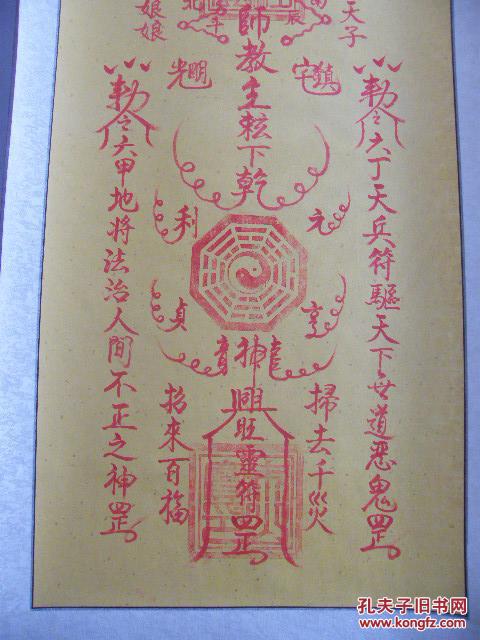 天子
勅令六丁天兵符驅天下無道惡鬼罡
鎮宅
元
亨
掃去千災
師教主敕下乾
神
興旺靈符罡
光明
利
貞
招來百福
娘娘
勅令六甲地将法治人間不正之神罡
孔夫子旧书网
www.kongfz.com